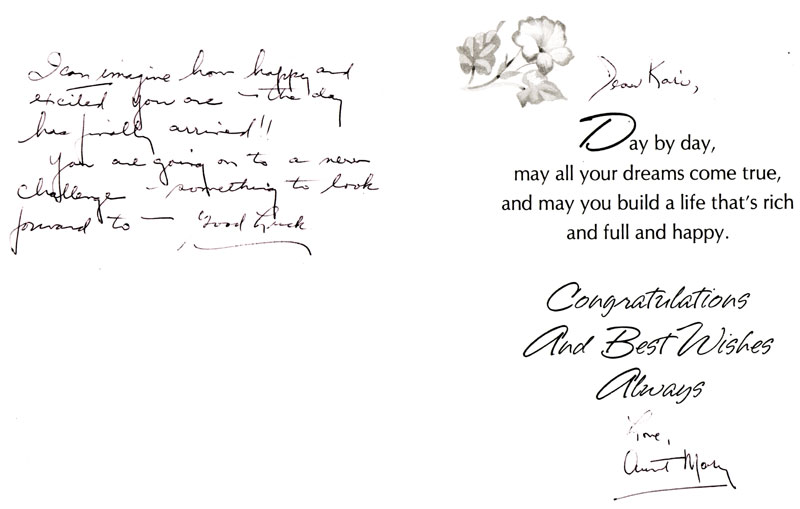 I can imagine how happy and
excited you are — the day
has finally arrived!!
You are going on to a new
challenge - something to look
forward to — Good Luck
Dear Kari,
Day by day,
may all your dreams come true,
and may you build a life that's rich
and full and happy.
Congratulations
And Best Wishes
Always
Love,
Aunt Mary